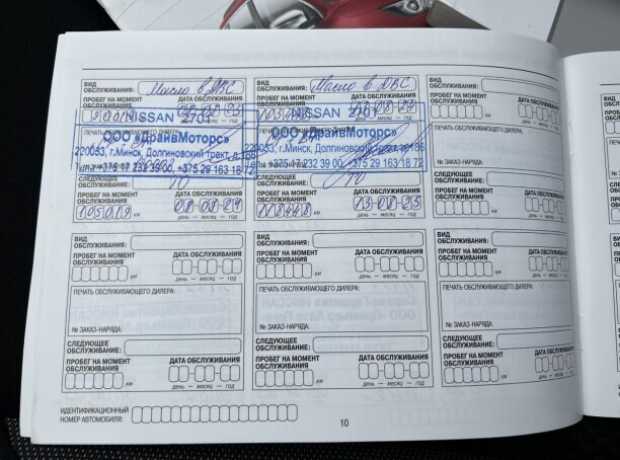 ВИД ОБСЛУЖИВАНИЯ: Масло в ДВС
ПРОБЕГ НА МОМЕНТ ОБСЛУЖИВАНИЯ ДАТА ОБСЛУЖИВАНИЯ
NISSAN 2701
ООО «ДрайвМоторс»
220053, г.Минск, Долгиновский тракт, д.186
+375 17 232 39 00, +375 29 163 18 72
СЛЕДУЮЩЕЕ ОБСЛУЖИВАНИЕ: ТО
ПРОБЕГ НА МОМЕНТ ОБСЛУЖИВАНИЯ ДАТА ОБСЛУЖИВАНИЯ
105019 08-08-24
км день — месяц — год
ВИД ОБСЛУЖИВАНИЯ: Масло в ДВС
ПРОБЕГ НА МОМЕНТ ОБСЛУЖИВАНИЯ ДАТА ОБСЛУЖИВАНИЯ
NISSAN 2701
ООО «ДрайвМоторс»
220053, г.Минск, Долгиновский тракт, д.186
+375 17 232 39 00, +375 29 163 18 72
СЛЕДУЮЩЕЕ ОБСЛУЖИВАНИЕ: ТО
ПРОБЕГ НА МОМЕНТ ОБСЛУЖИВАНИЯ ДАТА ОБСЛУЖИВАНИЯ
13-08-25
км день — месяц — год
ВИД ОБСЛУЖИВАНИЯ:
ПРОБЕГ НА МОМЕНТ ОБСЛУЖИВАНИЯ ДАТА ОБСЛУЖИВАНИЯ
км день — месяц — год
ПЕЧАТЬ ОБСЛУЖИВАЮЩЕГО ДИЛЕРА:
№ ЗАКАЗ-НАРЯДА:
СЛЕДУЮЩЕЕ ОБСЛУЖИВАНИЕ:
ПРОБЕГ НА МОМЕНТ ОБСЛУЖИВАНИЯ ДАТА ОБСЛУЖИВАНИЯ
км день — месяц — год
ВИД ОБСЛУЖИВАНИЯ:
ПРОБЕГ НА МОМЕНТ ОБСЛУЖИВАНИЯ ДАТА ОБСЛУЖИВАНИЯ
км день — месяц — год
ПЕЧАТЬ ОБСЛУЖИВАЮЩЕГО ДИЛЕРА:
№ ЗАКАЗ-НАРЯДА:
СЛЕДУЮЩЕЕ ОБСЛУЖИВАНИЕ:
ПРОБЕГ НА МОМЕНТ ОБСЛУЖИВАНИЯ ДАТА ОБСЛУЖИВАНИЯ
км день — месяц — год
ВИД ОБСЛУЖИВАНИЯ:
ПРОБЕГ НА МОМЕНТ ОБСЛУЖИВАНИЯ ДАТА ОБСЛУЖИВАНИЯ
км день — месяц — год
ПЕЧАТЬ ОБСЛУЖИВАЮЩЕГО ДИЛЕРА:
№ ЗАКАЗ-НАРЯДА:
СЛЕДУЮЩЕЕ ОБСЛУЖИВАНИЕ:
ПРОБЕГ НА МОМЕНТ ОБСЛУЖИВАНИЯ ДАТА ОБСЛУЖИВАНИЯ
км день — месяц — год
ВИД ОБСЛУЖИВАНИЯ:
ПРОБЕГ НА МОМЕНТ ОБСЛУЖИВАНИЯ ДАТА ОБСЛУЖИВАНИЯ
км день — месяц — год
ПЕЧАТЬ ОБСЛУЖИВАЮЩЕГО ДИЛЕРА:
№ ЗАКАЗ-НАРЯДА:
СЛЕДУЮЩЕЕ ОБСЛУЖИВАНИЕ:
ПРОБЕГ НА МОМЕНТ ОБСЛУЖИВАНИЯ ДАТА ОБСЛУЖИВАНИЯ
км день — месяц — год
ИДЕНТИФИКАЦИОННЫЙ НОМЕР АВТОМОБИЛЯ:
10